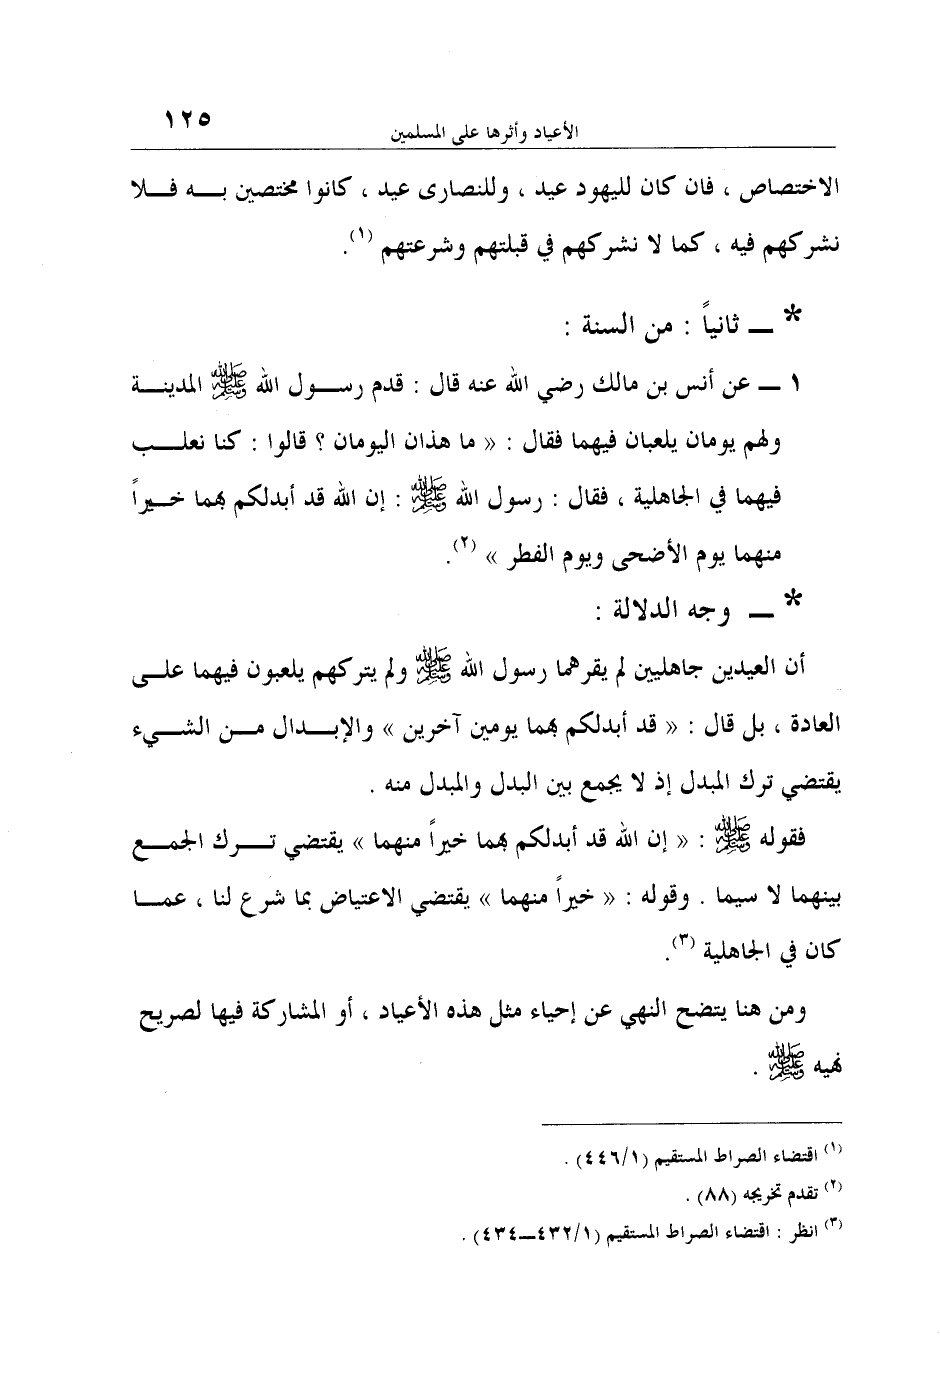 ١٢٥
الأعياد وأثرها على المسلمين
الاختصاص ، فان كان لليهود عيد ، وللنصارى عيد ، كانوا مختصين بــه فــلا
نشركهم فيه ، كما لا نشركهم في قبلتهم وشرعتهم (١).
* ــ ثانياً : من السنة :
١ ــ عن أنس بن مالك رضي الله عنه قال : قدم رســول الله ﷺ المدينــة
ولهم يومان يلعبان فيهما فقال : « ما هذان اليومان ؟ قالوا : كنا نعلــب
فيهما في الجاهلية ، فقال : رسول الله ﷺ : إن الله قد أبدلكم بهما خــيراً
منهما يوم الأضحى ويوم الفطر » (٢).
* ــ وجه الدلالة :
أن العيدين جاهليين لم يقرهما رسول الله ﷺ ولم يتركهم يلعبون فيهما علــى
العادة ، بل قال : « قد أبدلكم بهما يومين آخرين » والإبــدال مــن الشــيء
يقتضي ترك المبدل إذ لا يجمع بين البدل والمبدل منه .
فقوله ﷺ : « إن الله قد أبدلكم بهما خيراً منهما » يقتضي تــرك الجمــع
بينهما لا سيما . وقوله : « خيراً منهما » يقتضي الاعتياض بما شرع لنا ، عمــا
كان في الجاهلية (٣).
ومن هنا يتضح النهي عن إحياء مثل هذه الأعياد ، أو المشاركة فيها لصريح
نهيه ﷺ .
(١) اقتضاء الصراط المستقيم (٤٤٦/١) .
(٢) تقدم تخريجه (٨٨) .
(٣) انظر : اقتضاء الصراط المستقيم (٤٣٢/١ــ٤٣٤) .